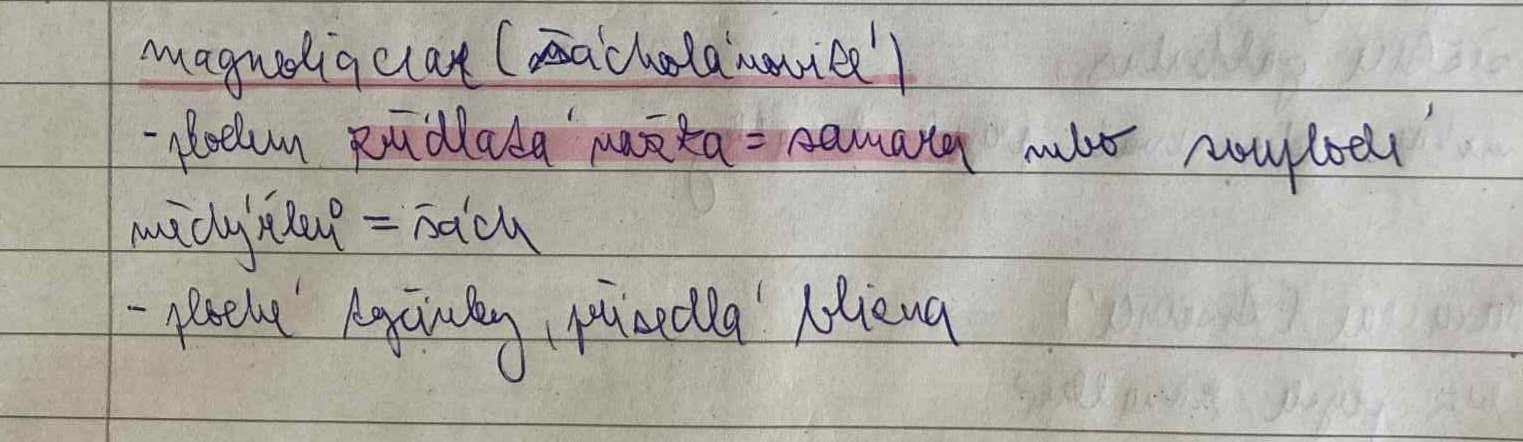 magnoliaceae (šácholanovité)
- plodem křídlatá nažka = samara nebo souplodí
měchýřků = šách
- ploché tyčinky, přisedlá blizna